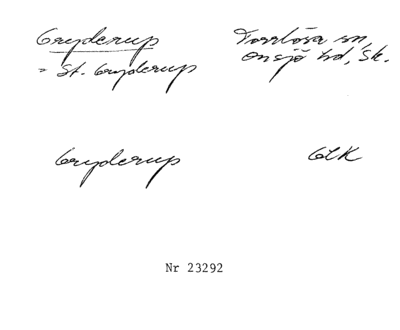 Gryderup
= St. Gryderup
Torrlösa sn,
Onsjö hd, Sk.
Gryderup
GLK
Nr 23292